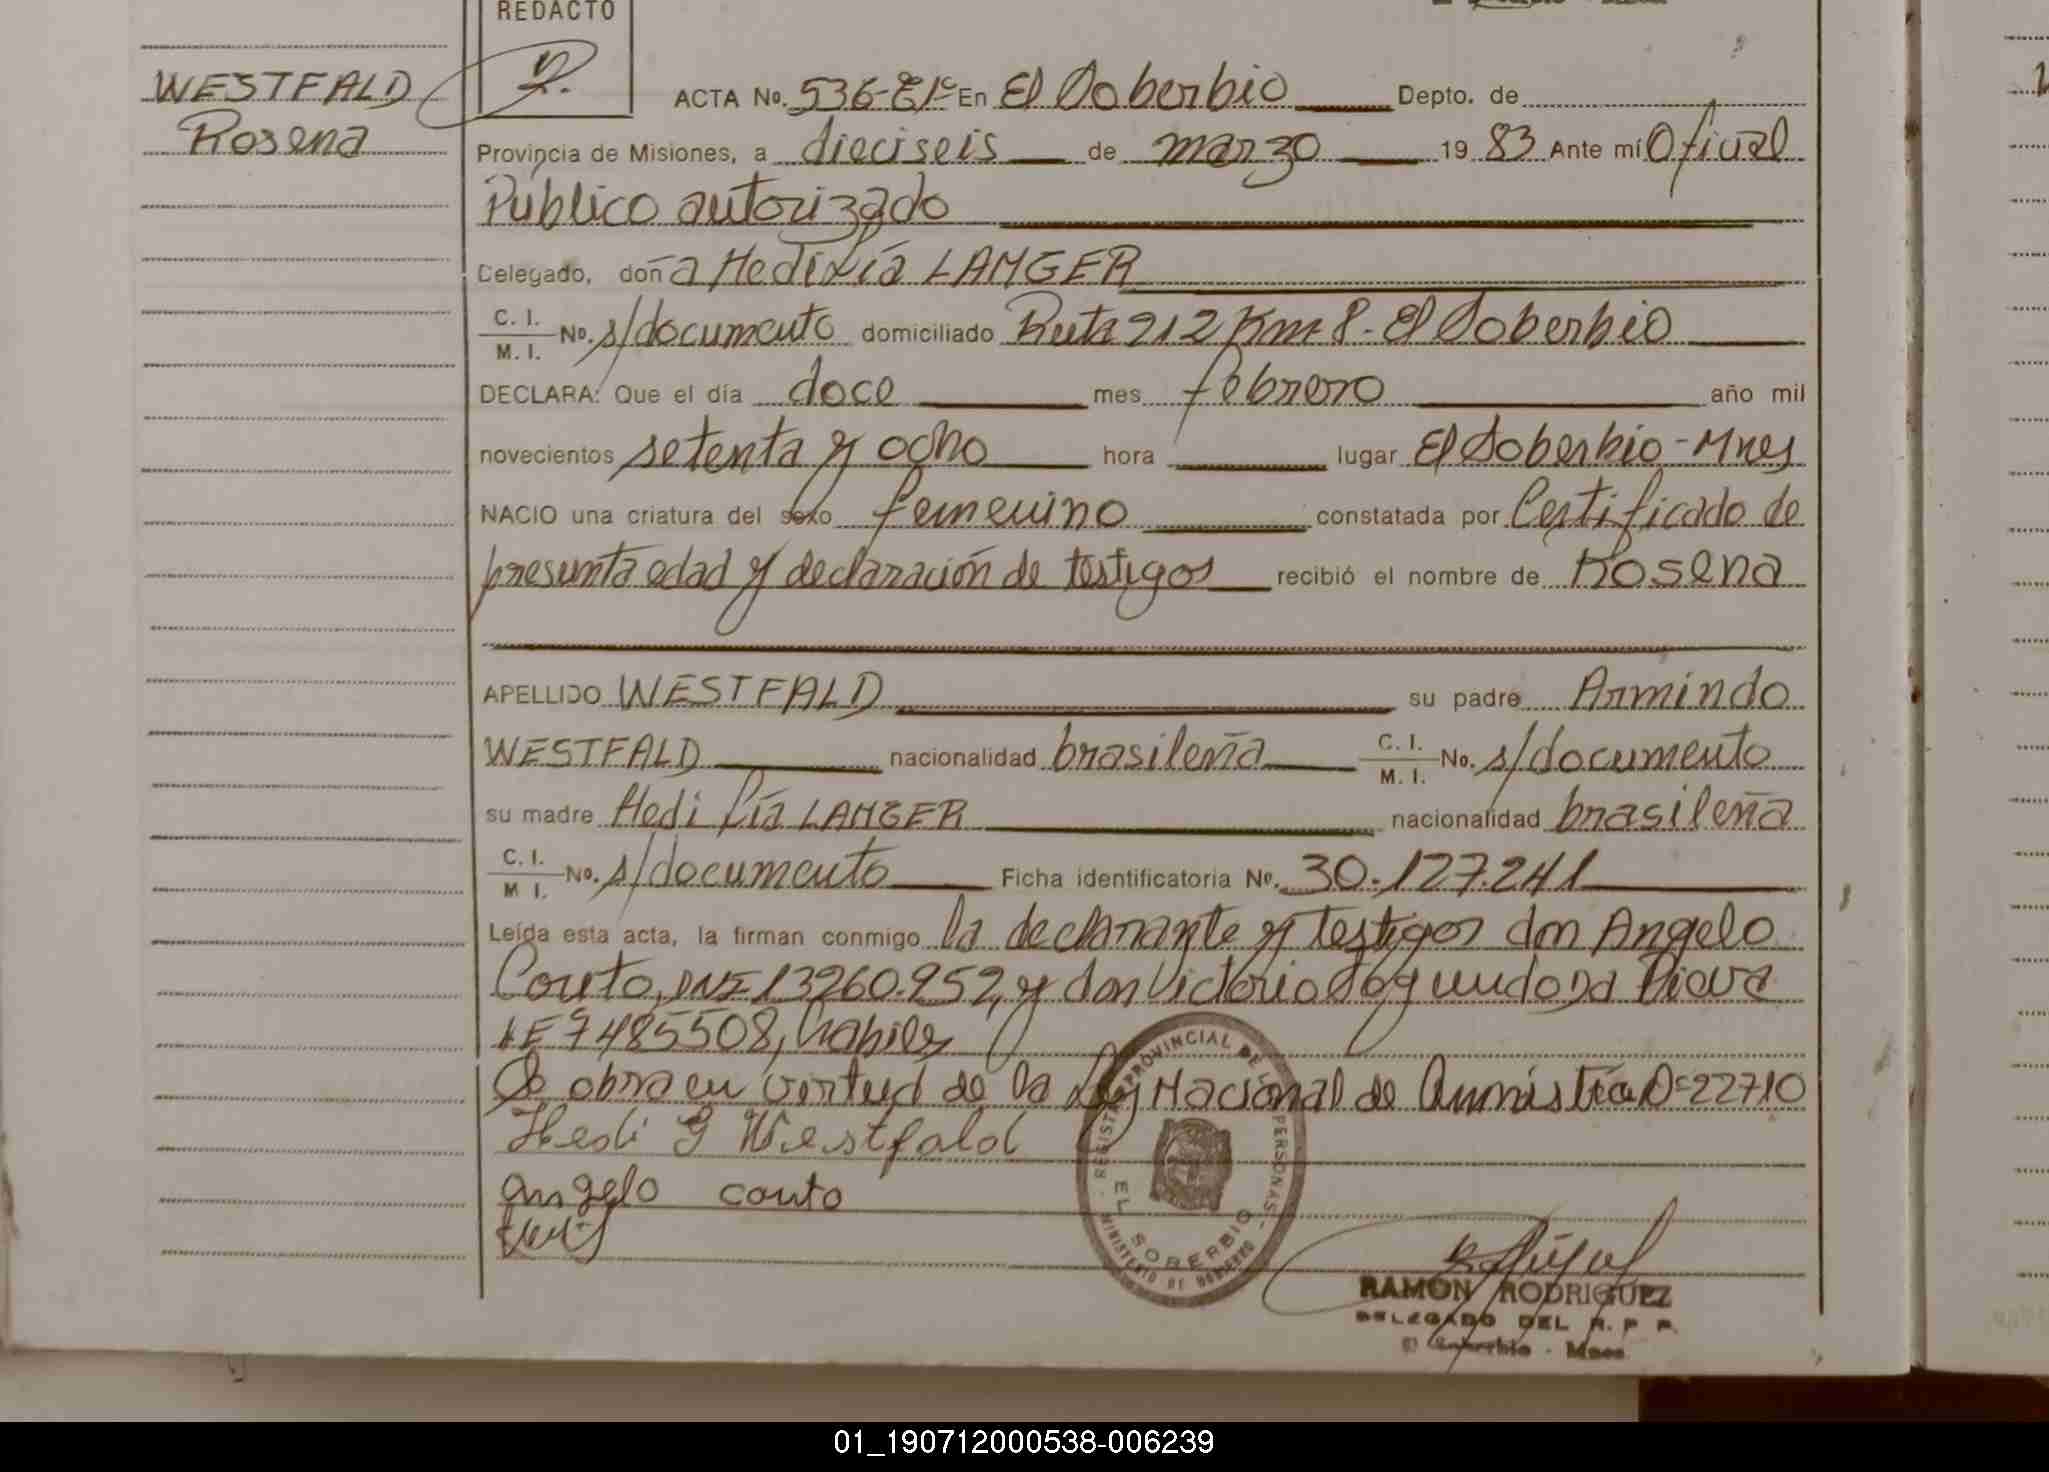 REDACTO
WESTFALD
Rosena
ACTA No. 536-E1º En El Soberbio Depto. de
Provincia de Misiones, a dieciseis de marzo 19 83 Ante mí Oficial
Publico autorizado
Delegado, doña Hedi Lía LANGER
C. I. / M. I. No. s/documento domiciliado Ruta 212 Km 8 - El Soberbio
DECLARA: Que el día doce mes febrero año mil
novecientos setenta y ocho hora lugar El Soberbio - Mnes
NACIO una criatura del sexo femenino constatada por Certificado de
presunta edad y declaración de testigos recibió el nombre de Rosena
APELLIDO WESTFALD su padre Armindo
WESTFALD nacionalidad brasileña C. I. / M. I. No. s/documento
su madre Hedi Lía LANGER nacionalidad brasileña
C. I. / M I. No. s/documento Ficha identificatoria No. 30.127.241
Leída esta acta, la firman conmigo la declarante y testigos don Angelo
Couto, DNI 13260.952, y don Victorio
LE 7485508, habiles
Se obra en virtud de la Ley Nacional de Amnistía Nº 22710
Hedi G Westfald
Angelo couto
REGISTRO PROVINCIAL DE LAS PERSONAS
EL SOBERBIO
MINISTERIO DE GOBIERNO
RAMON RODRIGUEZ
DELEGADO DEL R. P. P.
El Soberbio - Mnes
01_190712000538-006239